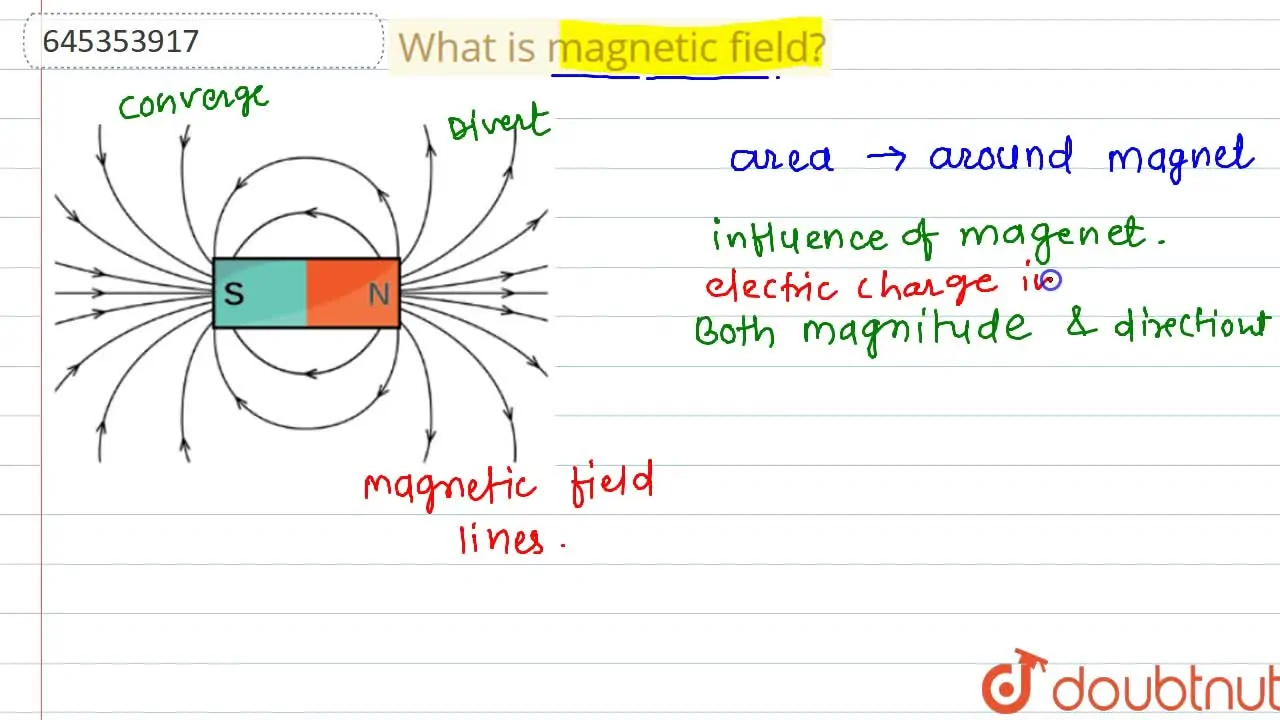 645353917
What is magnetic field?
converge
Divert
area → around magnet
influence of magenet.
electric charge in
Both magnitude & direction
S N
magnetic field
lines.
doubtnut